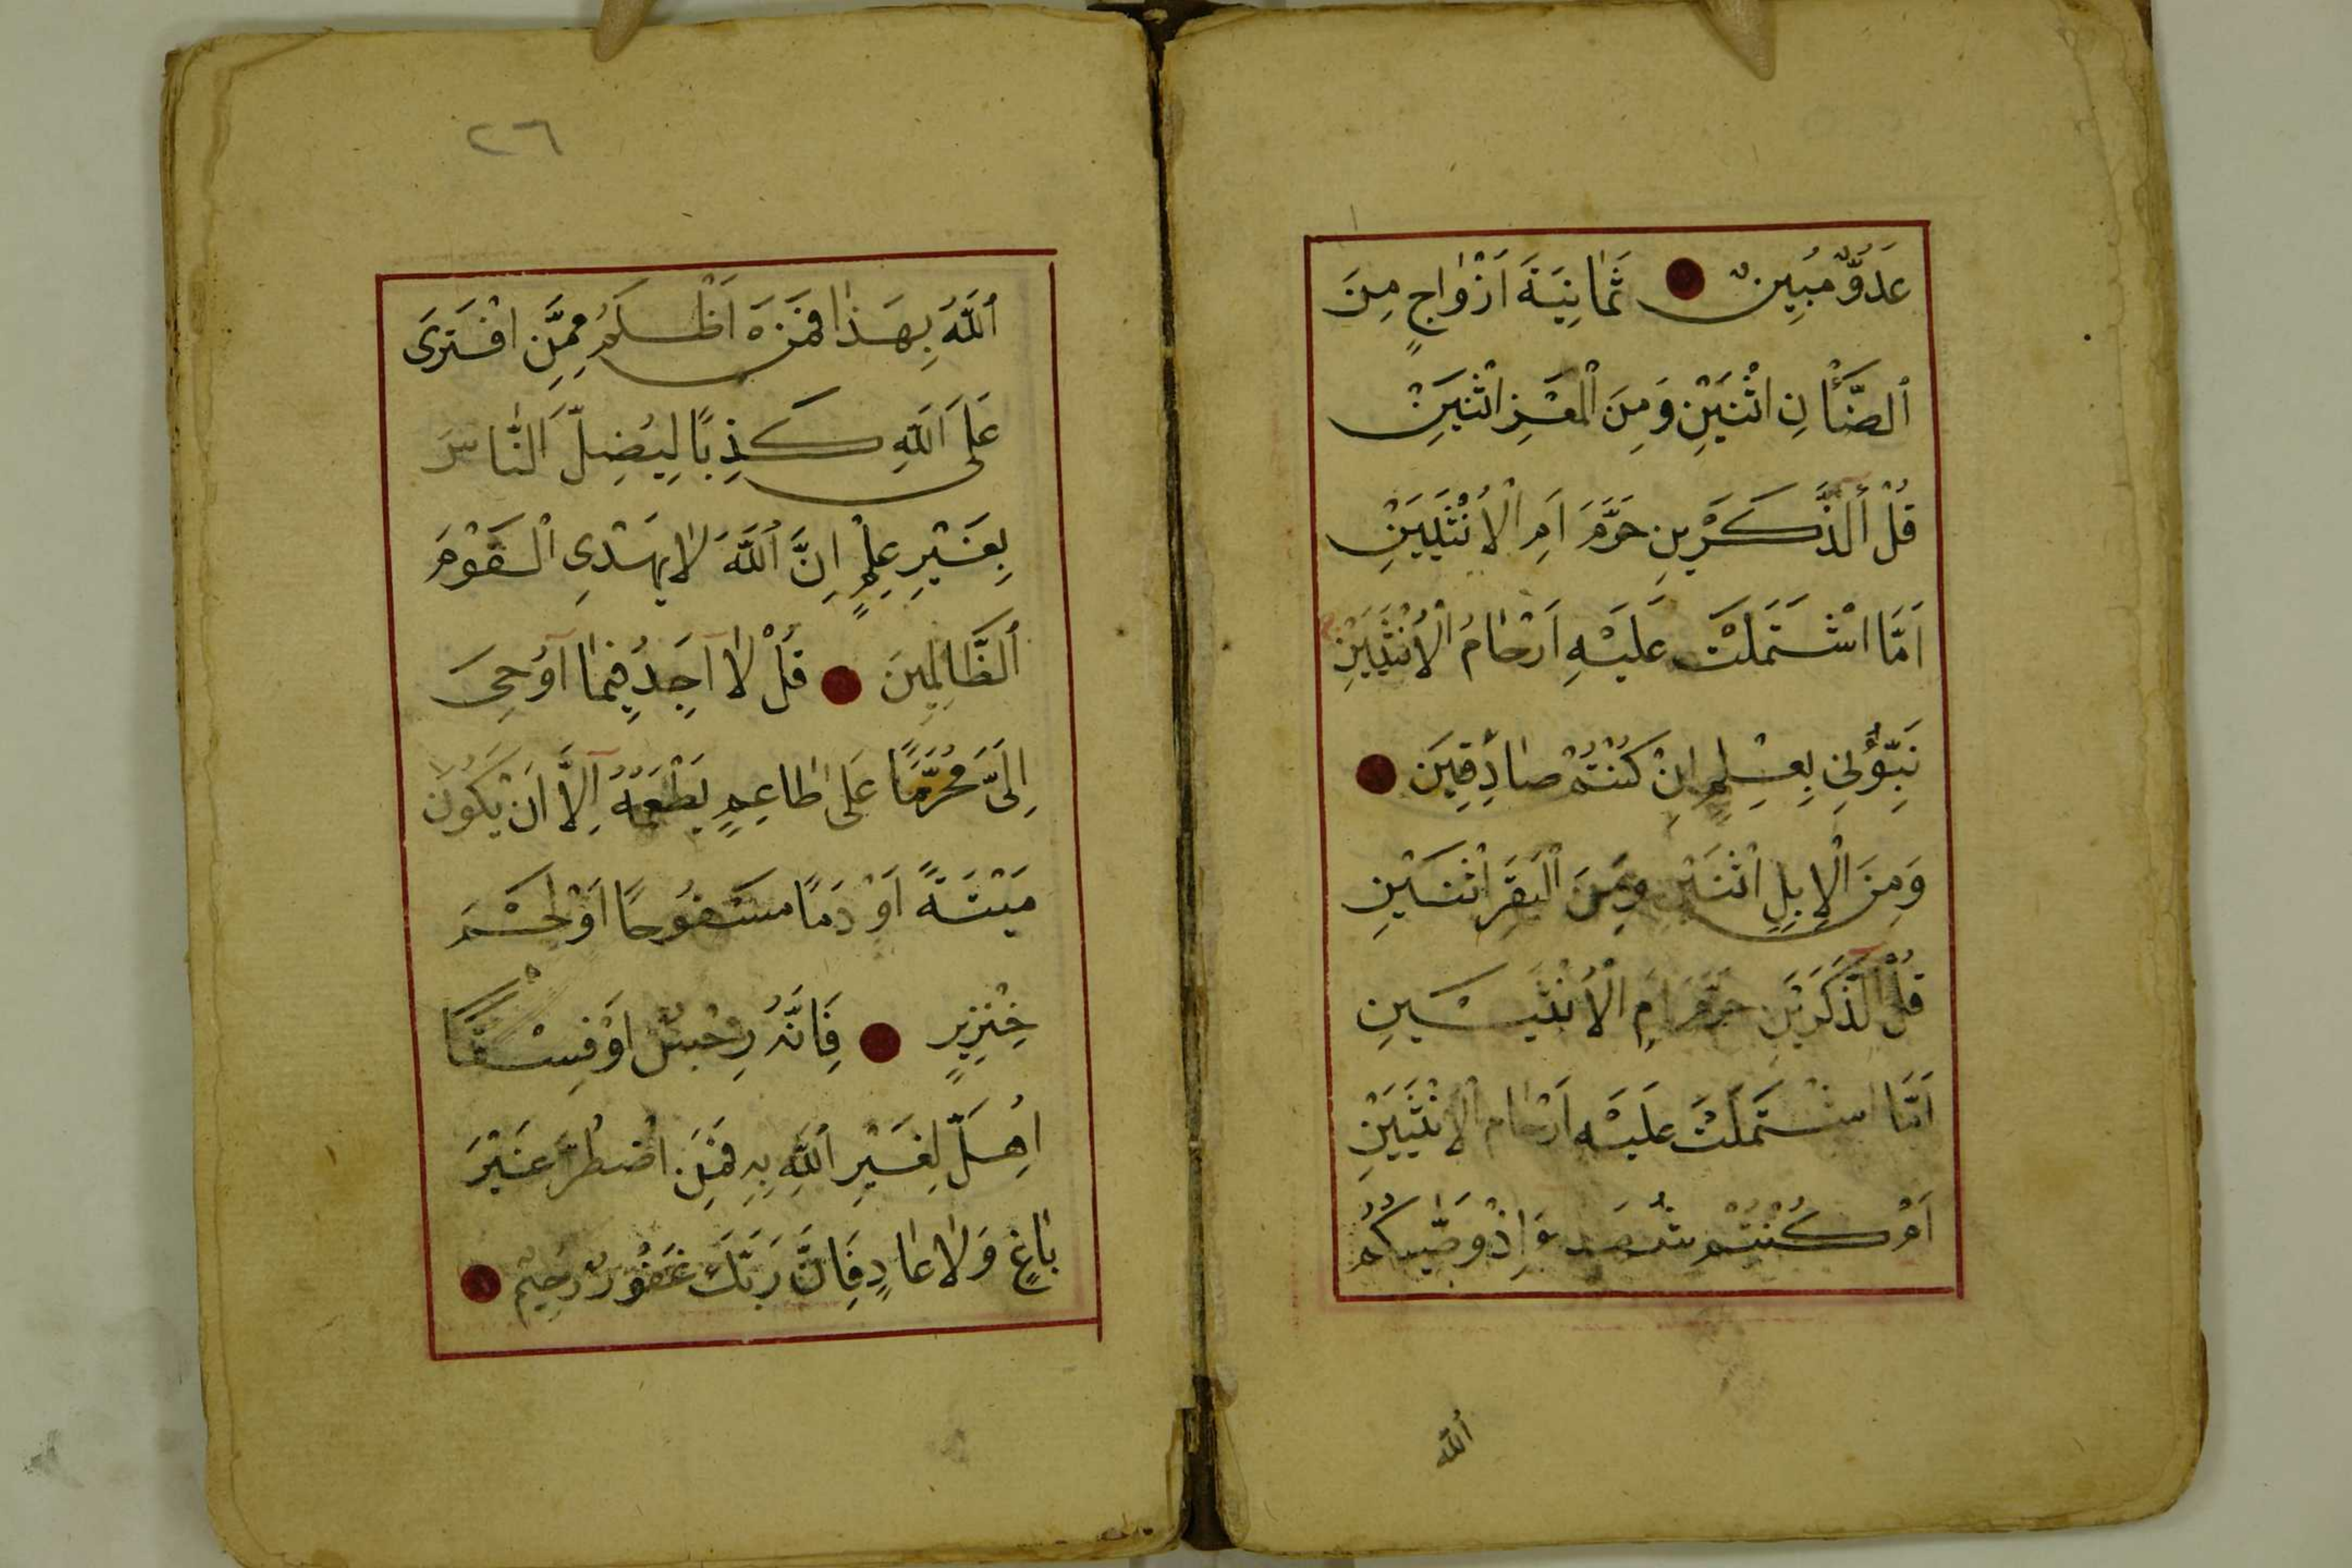 عَدُوٌّ مُبِينٌ ثَمَانِيَةَ اَزْوَاجٍ مِنَ
ٱلضَّأْنِ اثْنَيْنِ وَمِنَ الْمَعْزِ اثْنَيْنِ
قُلْ ءٰالذَّكَرَيْنِ حَرَّمَ اَمِ الْاُنْثَيَيْنِ
اَمَّا اشْتَمَلَتْ عَلَيْهِ اَرْحَامُ الْاُنْثَيَيْنِ
نَبِّؤُنِي بِعِلْمٍ اِنْ كُنْتُمْ صَادِقِينَ
وَمِنَ الْاِبِلِ اثْنَيْنِ وَمِنَ الْبَقَرِ اثْنَيْنِ
قُلْ ءٰالذَّكَرَيْنِ حَرَّمَ اَمِ الْاُنْثَيَيْنِ
اَمَّا اشْتَمَلَتْ عَلَيْهِ اَرْحَامُ الْاُنْثَيَيْنِ
اَمْ كُنْتُمْ شُهَدَاءَ اِذْ وَصّٰيكُمُ
ٱللّٰهُ
٢٦
ٱللّٰهُ بِهَذَا فَمَنْ اَظْلَمُ مِمَّنِ افْتَرَى
عَلَى ٱللّٰهِ كَذِبًا لِيُضِلَّ النَّاسَ
بِغَيْرِ عِلْمٍ اِنَّ ٱللّٰهَ لَا يَهْدِي الْقَوْمَ
ٱلظَّالِمِينَ قُلْ لَا اَجِدُ فِيمَا اُوحِيَ
اِلَيَّ مُحَرَّمًا عَلَى طَاعِمٍ يَطْعَمُهُ اِلَّا اَنْ يَكُونَ
مَيْتَةً اَوْ دَمًا مَسْفُوحًا اَوْ لَحْمَ
خِنْزِيرٍ فَاِنَّهُ رِجْسٌ اَوْ فِسْقًا
اُهِلَّ لِغَيْرِ ٱللّٰهِ بِهِ فَمَنِ اضْطُرَّ غَيْرَ
بَاغٍ وَلَا عَادٍ فَاِنَّ رَبَّكَ غَفُورٌ رَحِيمٌ